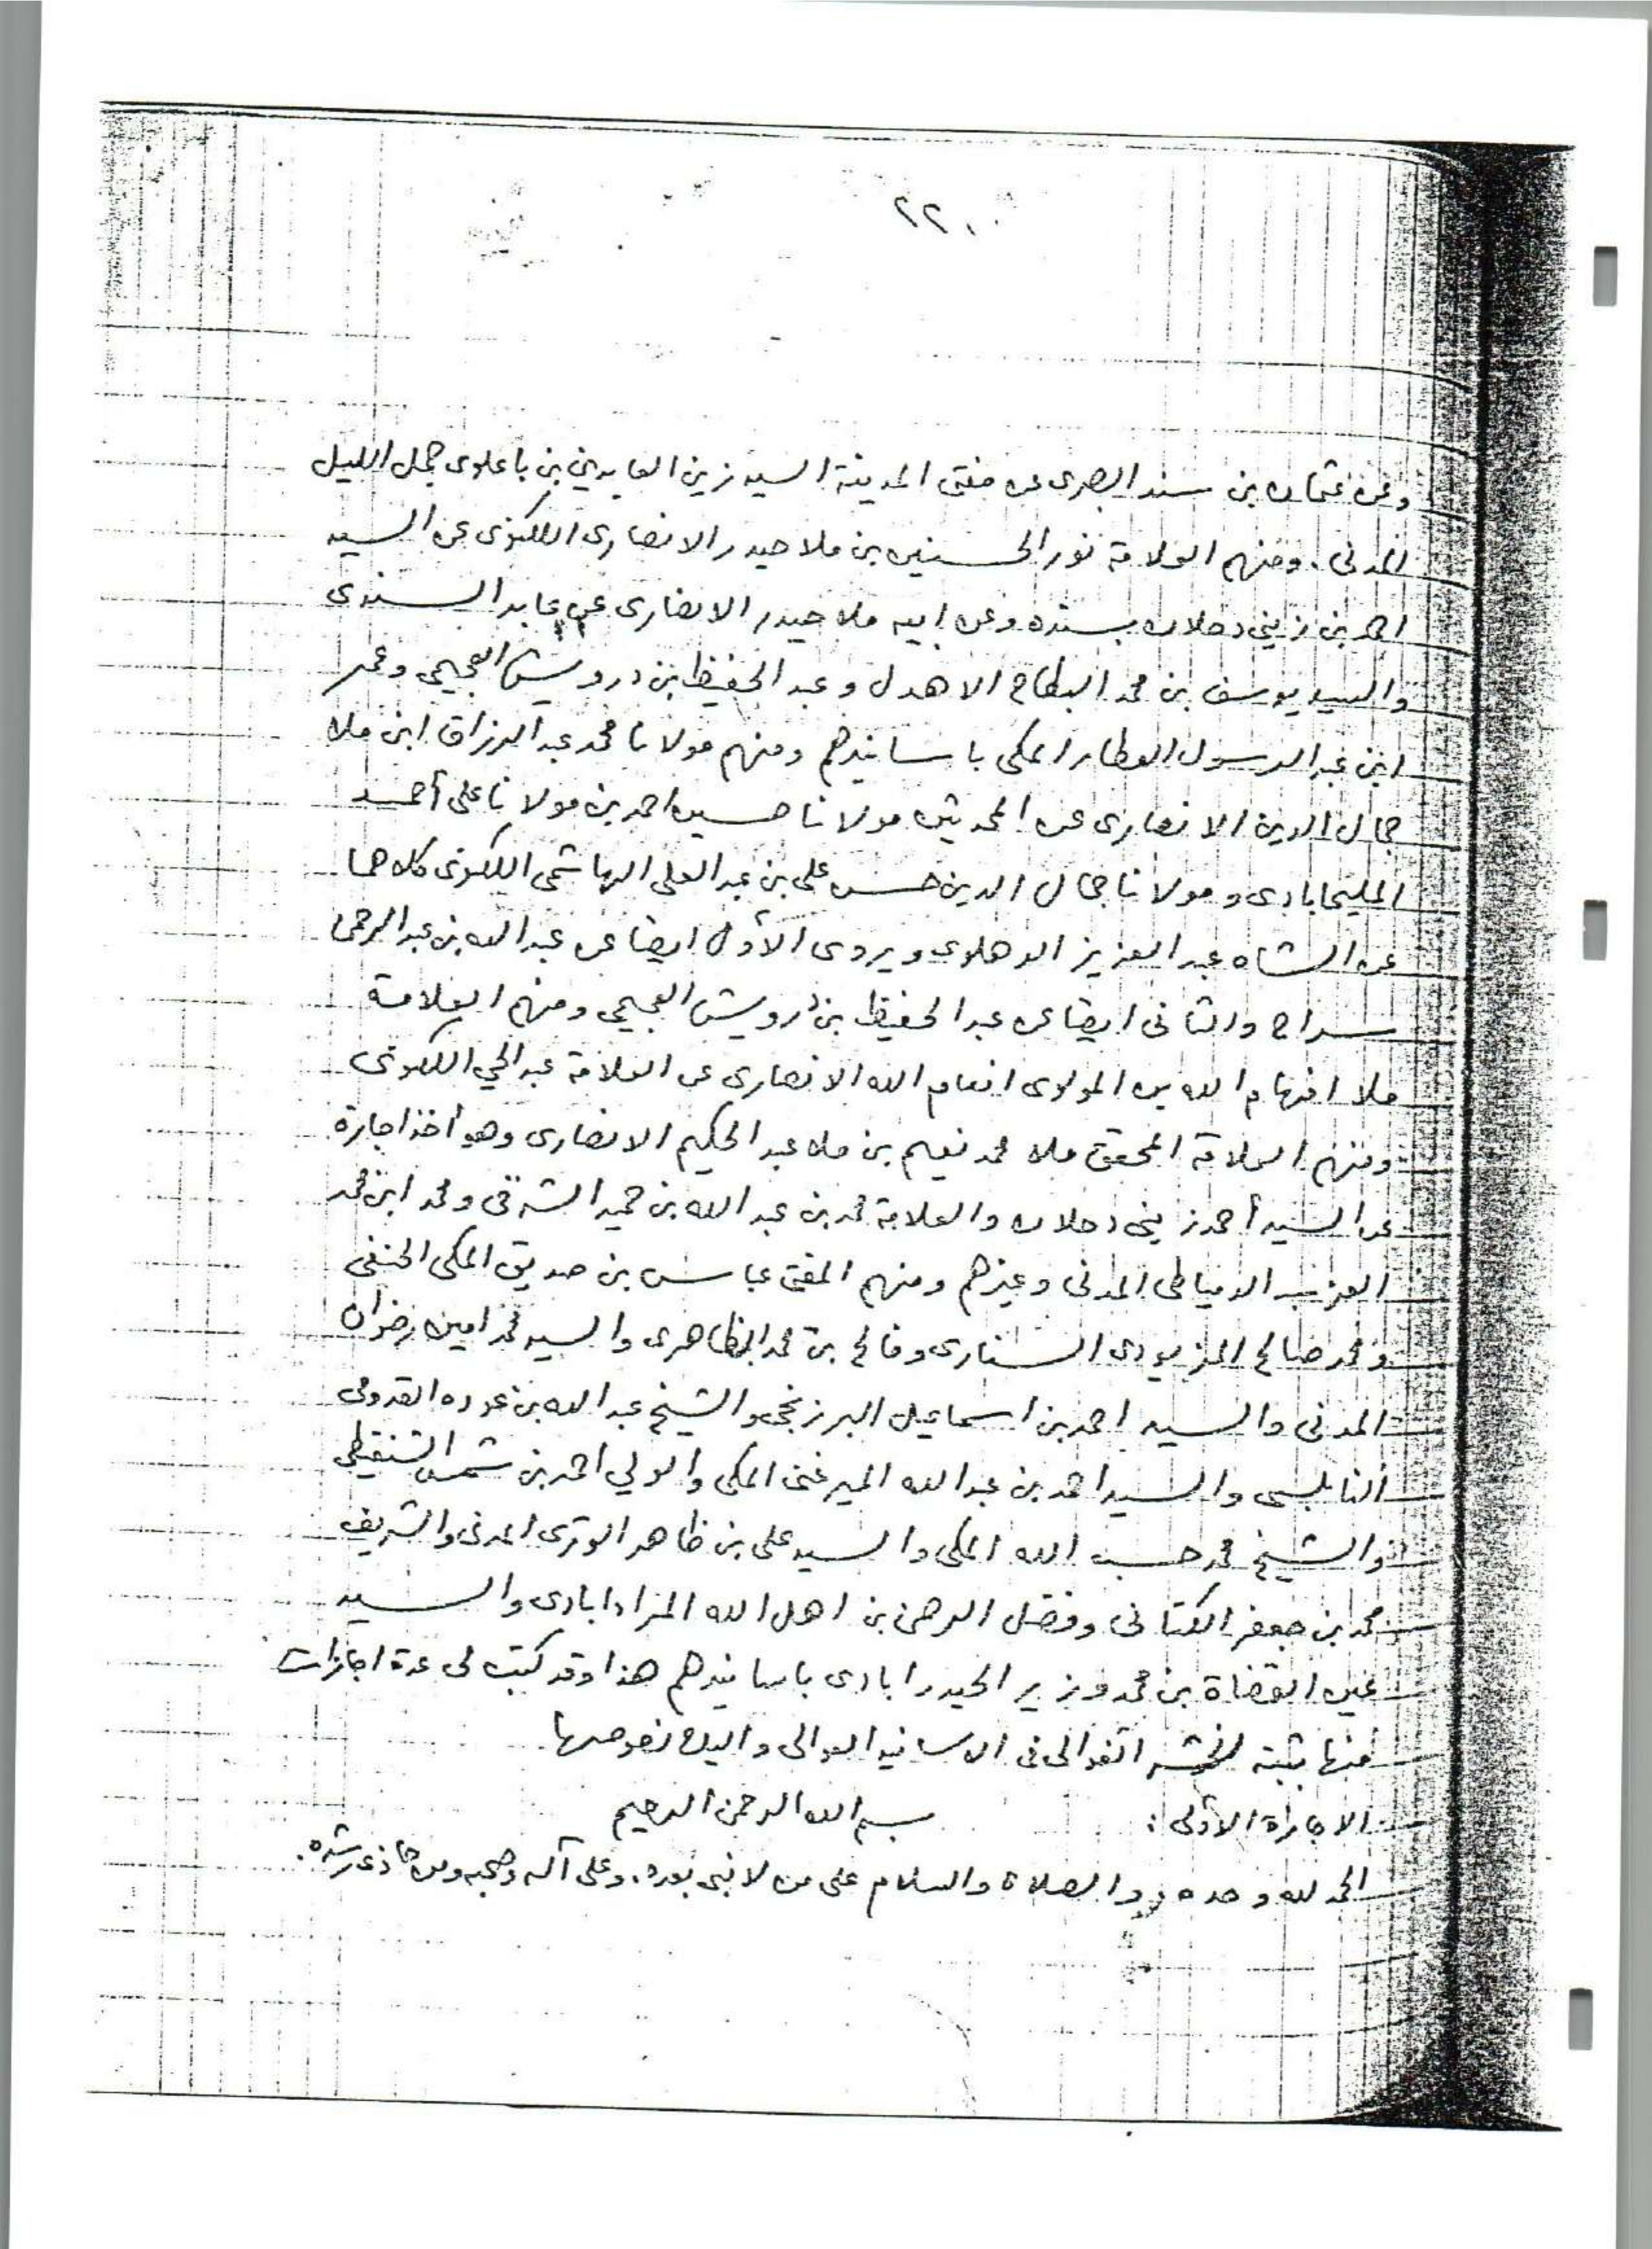 ٢٢٠
وعن عثمان بن سند البصرى عن مفتى المدينة السيد زين العابدين بن باعلوى جمل الليل
المدنى . ومنهم العلامة نور الحسنين بن ملا حيدر الانصارى اللكنوى عن السيد
احمد بن زينى دحلان بسنده وعن ابيه ملا حيدر الانصارى عن عابد السندى
والسيد يوسف بن محمد البطاح الاهدل وعبد الحفيظ بن درويش العجيمى وعمر
ابن عبد الرسول العطار المكى باسانيدهم ومنهم مولانا محمد عبد الرزاق ابن ملا
جمال الدين الانصارى عن المحدثين مولانا حسين احمد بن مولانا على أحمد
المليحابادى ومولانا جمال الدين حسن على بن عبد العلى الهاشمى اللكنوى كلاهما
عن الشاه عبد العزيز الدهلوى ويروى الأول ايضا عن عبد الله بن عبد الرحمن
سراج والثانى ايضا عن عبد الحفيظ بن درويش العجيمى ومنهم العلامة
ملا افهام الله بن المولوى انعام الله الانصارى عن العلامة عبد الحي اللكنوى
ومنهم العلامة المحقق ملا محمد نعيم بن ملا عبد الحكيم الانصارى وهو أخذ اجازة
عن السيد أحمد زينى دحلان والعلامة محمد بن عبد الله بن حميد الشرقى ومحمد ابن محمد
العزب الدمياطى المدنى وغيرهم ومنهم المفتى عباس بن صديق المكى الحنفى
ومحمد صالح السنارى وفالح بن محمد الظاهرى والسيد محمد امين رضوان
المدنى والسيد احمد بن اسماعيل البرزنجى والشيخ عبد الله بن عوده القدومى
النابلسى والسيد احمد بن عبد الله الميرغنى المكى والولي احمد بن شمس الشنقيطى
والشيخ محمد حسب الله المكى والسيد على بن ظاهر الوترى المدنى والشريف
محمد بن جعفر الكتانى وفضل الرحمن بن اهل الله المرادابادى والسيد
عين القضاة بن محمد وزير الحيدرابادى باسانيدهم هذا وقد كتبت لى عدة اجازات
منها ثبته فى الاسانيد العوالى واليك نصوصها
الاجازة الأولى : بسم الله الرحمن الرحيم
الحمد لله وحده والصلاة والسلام على من لا نبى بعده . وعلى آله وصحبه ومن